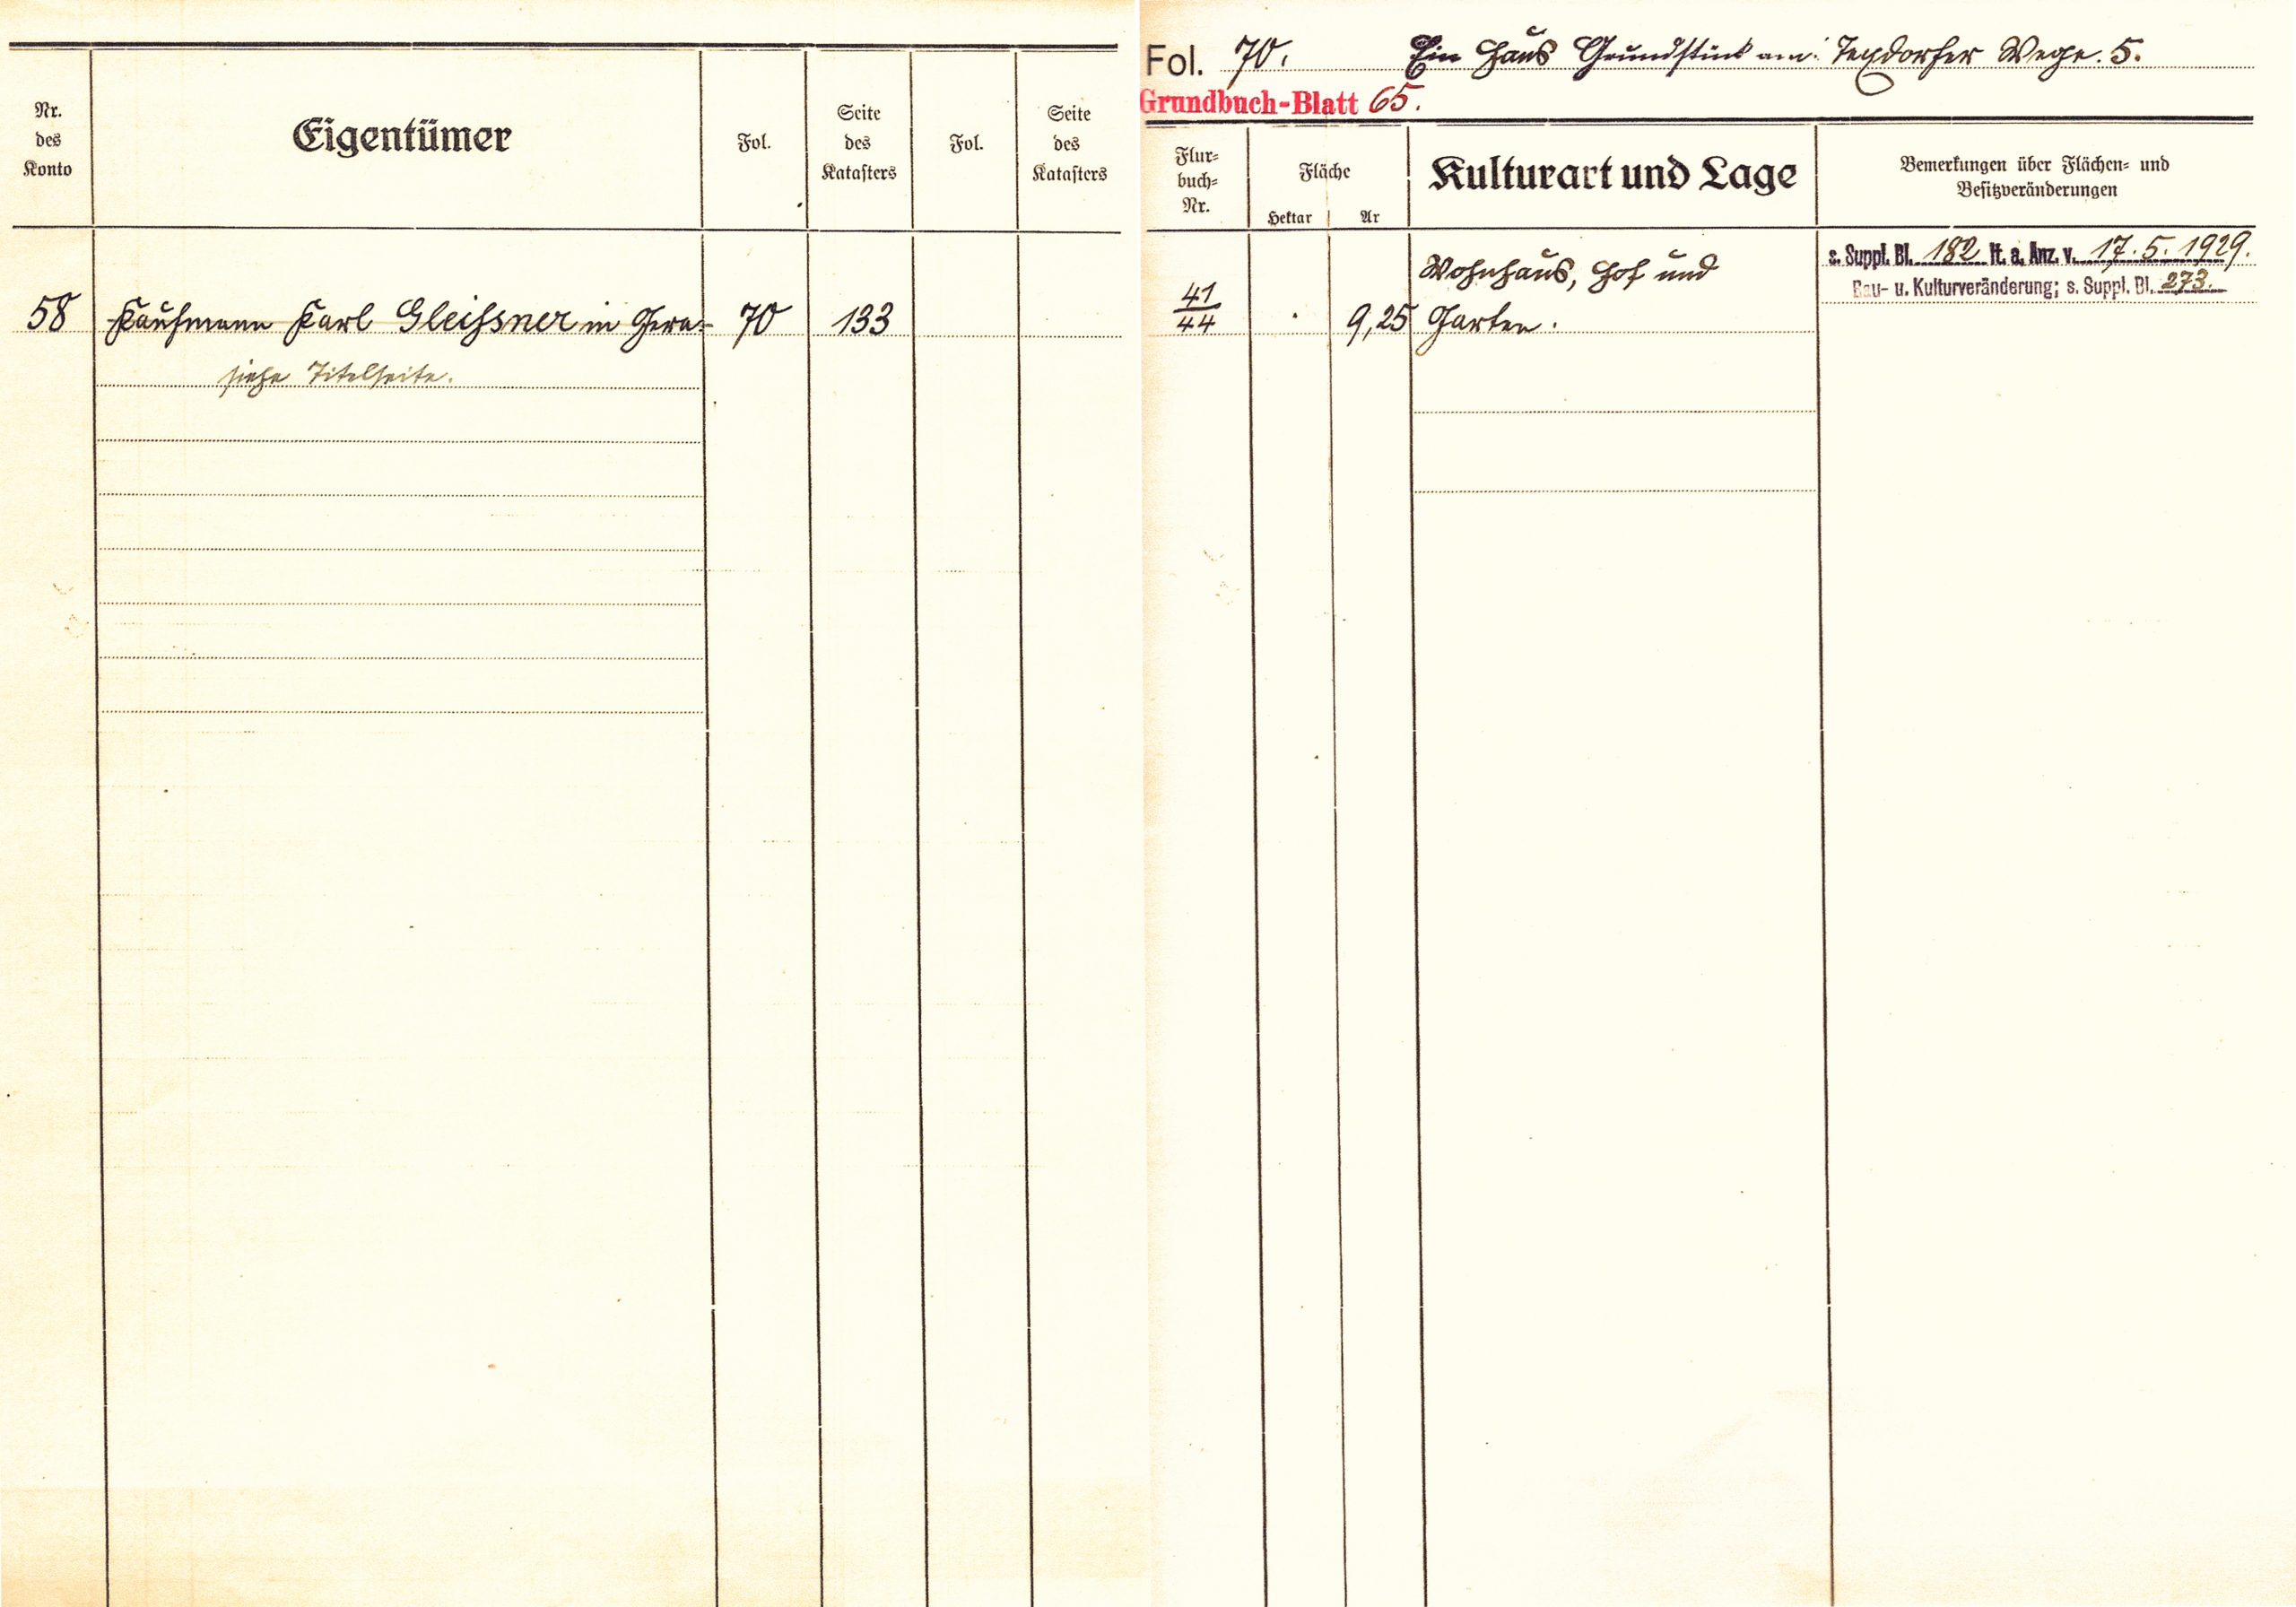 Nr.
des
Konto
Eigentümer
Fol.
Seite
des
Katasters
Fol.
Seite
des
Katasters
58 Kaufmann Karl Gleissner in Gera. 70 133
siehe Titelseite.
Fol. 70. Ein Haus Grundstück am Wege. 5.
Grundbuch-Blatt 65.
Flur-
buch-
Nr.
Fläche
Hektar Ar
Kulturart und Lage
Bemerkungen über Flächen- und
Besitzveränderungen
s. Suppl. Bl. 182 lt. a. Anz. v. 17.5.1929.
Bau- u. Kulturveränderung; s. Suppl. Bl. 273.
Wohnhaus, Hof und
41/44 . 9,25 Garten.